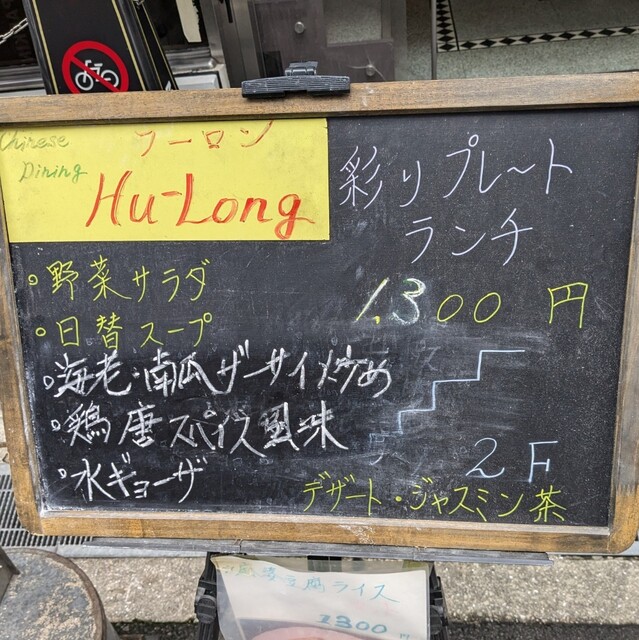 Chinese
Dining
フーロン
Hu-Long
彩りプレート
ランチ
1,300円
・野菜サラダ
・日替スープ
・海老・南瓜ザーサイ炒め
・鶏唐スパイス風味
・水ギョーザ
2F
デザート・ジャスミン茶
麻婆豆腐ライス
1300円